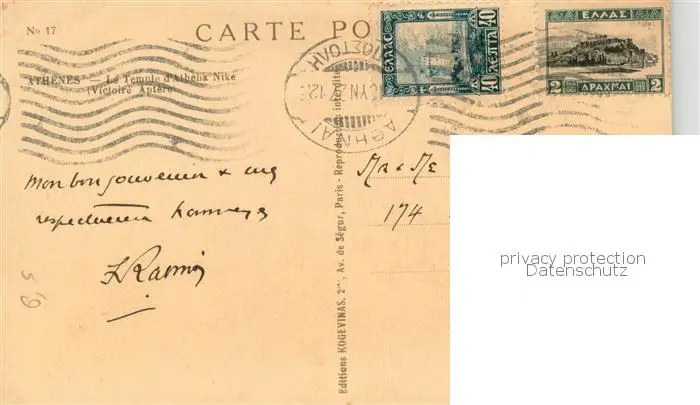 No 17
CARTE PO
ATHÈNES — Le Temple d'Athéna Niké
(Victoire Aptère)
ΕΛΛΑΣ
40
40
ΛΕΠΤΑ
ΕΛΛΑΣ
2 ΔΡΑΧΜΑΙ 2
ΑΘΗΝΑΙ
Mon bon souvenir &
respectueux hommages
174
59
Editions KOGEVINAS, 2bis, Av. de Ségur, Paris - Reproduction interdite
privacy protection
Datenschutz